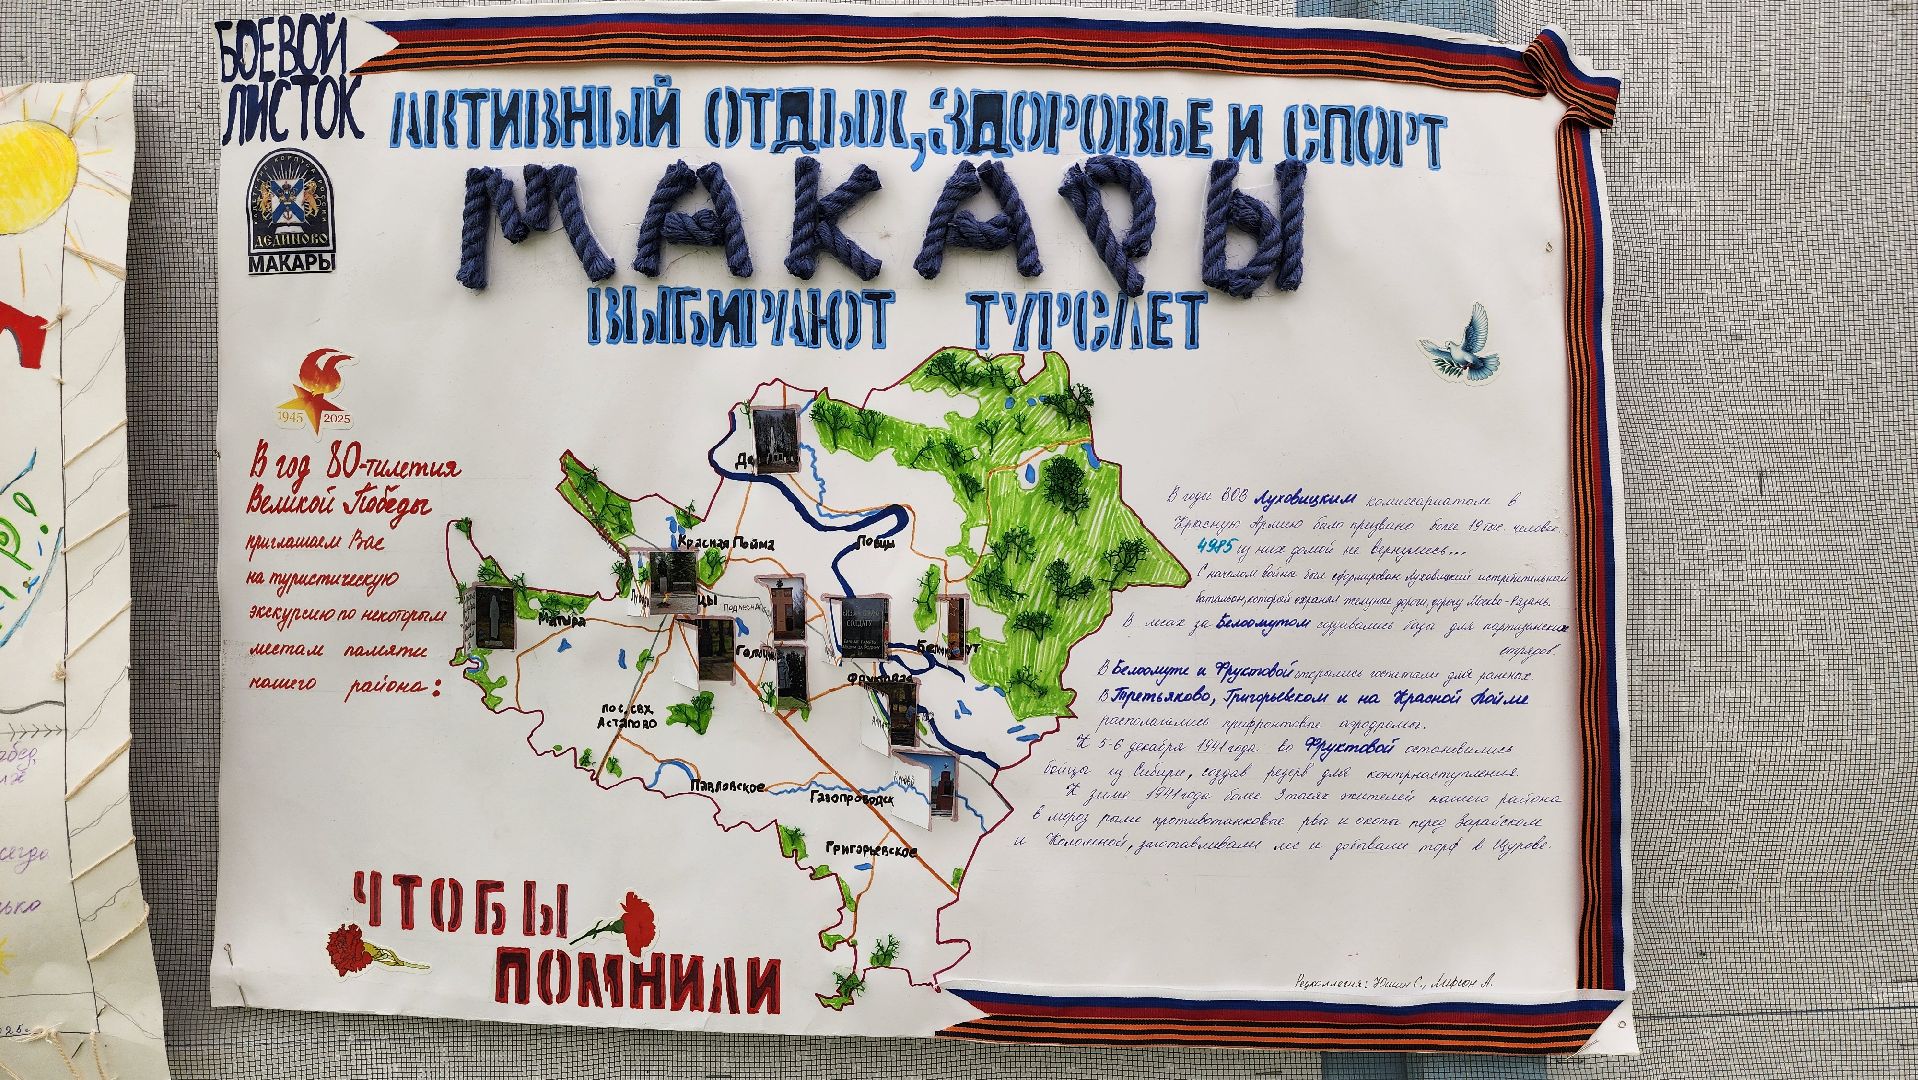 БОЕВОЙ
ЛИСТОК
АКТИВНЫЙ ОТДЫХ, ЗДОРОВЬЕ И СПОРТ
МАКАРЫ
ВЫБИРАЮТ ТУРСЛЕТ
ДЕДИНОВО
МАКАРЫ
1945 2025
В год 80-тилетия
Великой Победы
приглашаем Вас
на туристическую
экскурсию по некоторым
местам памяти
нашего района:
Красная Пойма
Ловцы
Матыра
пос. свх.
Астапово
Фруктовая
Павловское
Газопроводск
Григорьевское
В годы ВОВ Луховицким комиссариатом в
Красную Армию было призвано более 19 тыс. человек.
4985 из них домой не вернулись...
С началом войны был сформирован Луховицкий истребительный
батальон, который охранял железные дороги, дорогу Москва-Рязань.
В лесах за Белоомутом создавались базы для партизанских
отрядов.
В Белоомуте и Фруктовой открылись госпитали для раненых.
В Третьяково, Григорьевском и на Красной Пойме
располагались прифронтовые аэродромы.
К 5-6 декабря 1941 года во Фруктовой остановились
бойцы из Сибири, создав резерв для контрнаступления.
К зиме 1941 года более 3 тысяч жителей нашего района
в мороз рыли противотанковые рвы и окопы перед Зарайском
и Коломной, заготавливали лес и добывали торф в Щурове.
ЧТОБЫ
ПОМНИЛИ
Редколлегия: Юшин С.,